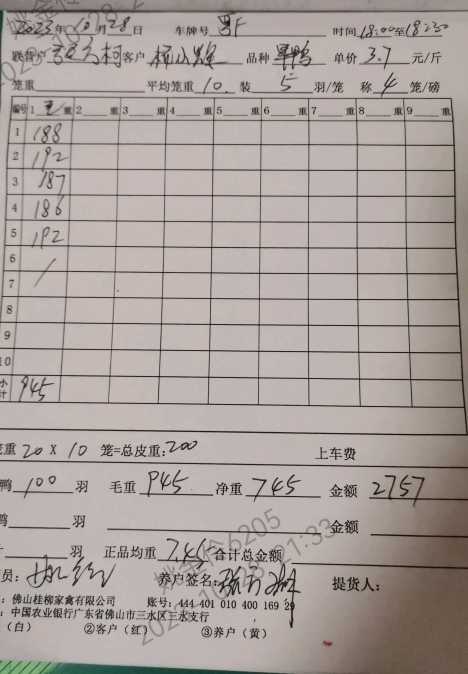 2023年10月28日 车牌号 时间18:00至18:30
客户 品种 单价 3.7 元/斤
笼重 平均笼重 10 装 5 羽/笼 称 4 笼/磅
编号 1 毛 重 2 重 3 重 4 重 5 重 6 重 7 重 8 重 9 重
1 188
2 192
3 187
4 186
5 192
6 /
7
8
9
10
小计 945
笼重 20 X 10 笼=总皮重:200 上车费
鸭 100 羽 毛重 945 净重 745 金额 2757
鸭 羽 金额
羽 正品均重 7.45 合计总金额
员: 养户签名: 提货人:
: 佛山桂柳家禽有限公司 账号: 444 401 010 400 169 29
: 中国农业银行广东省佛山市三水区三水支行
(白) ②客户(红) ③养户(黄)